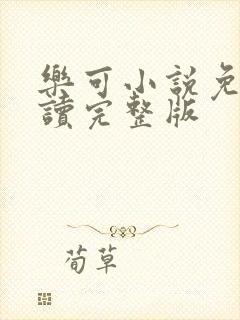 樂可小說免
讀完整版
荀草